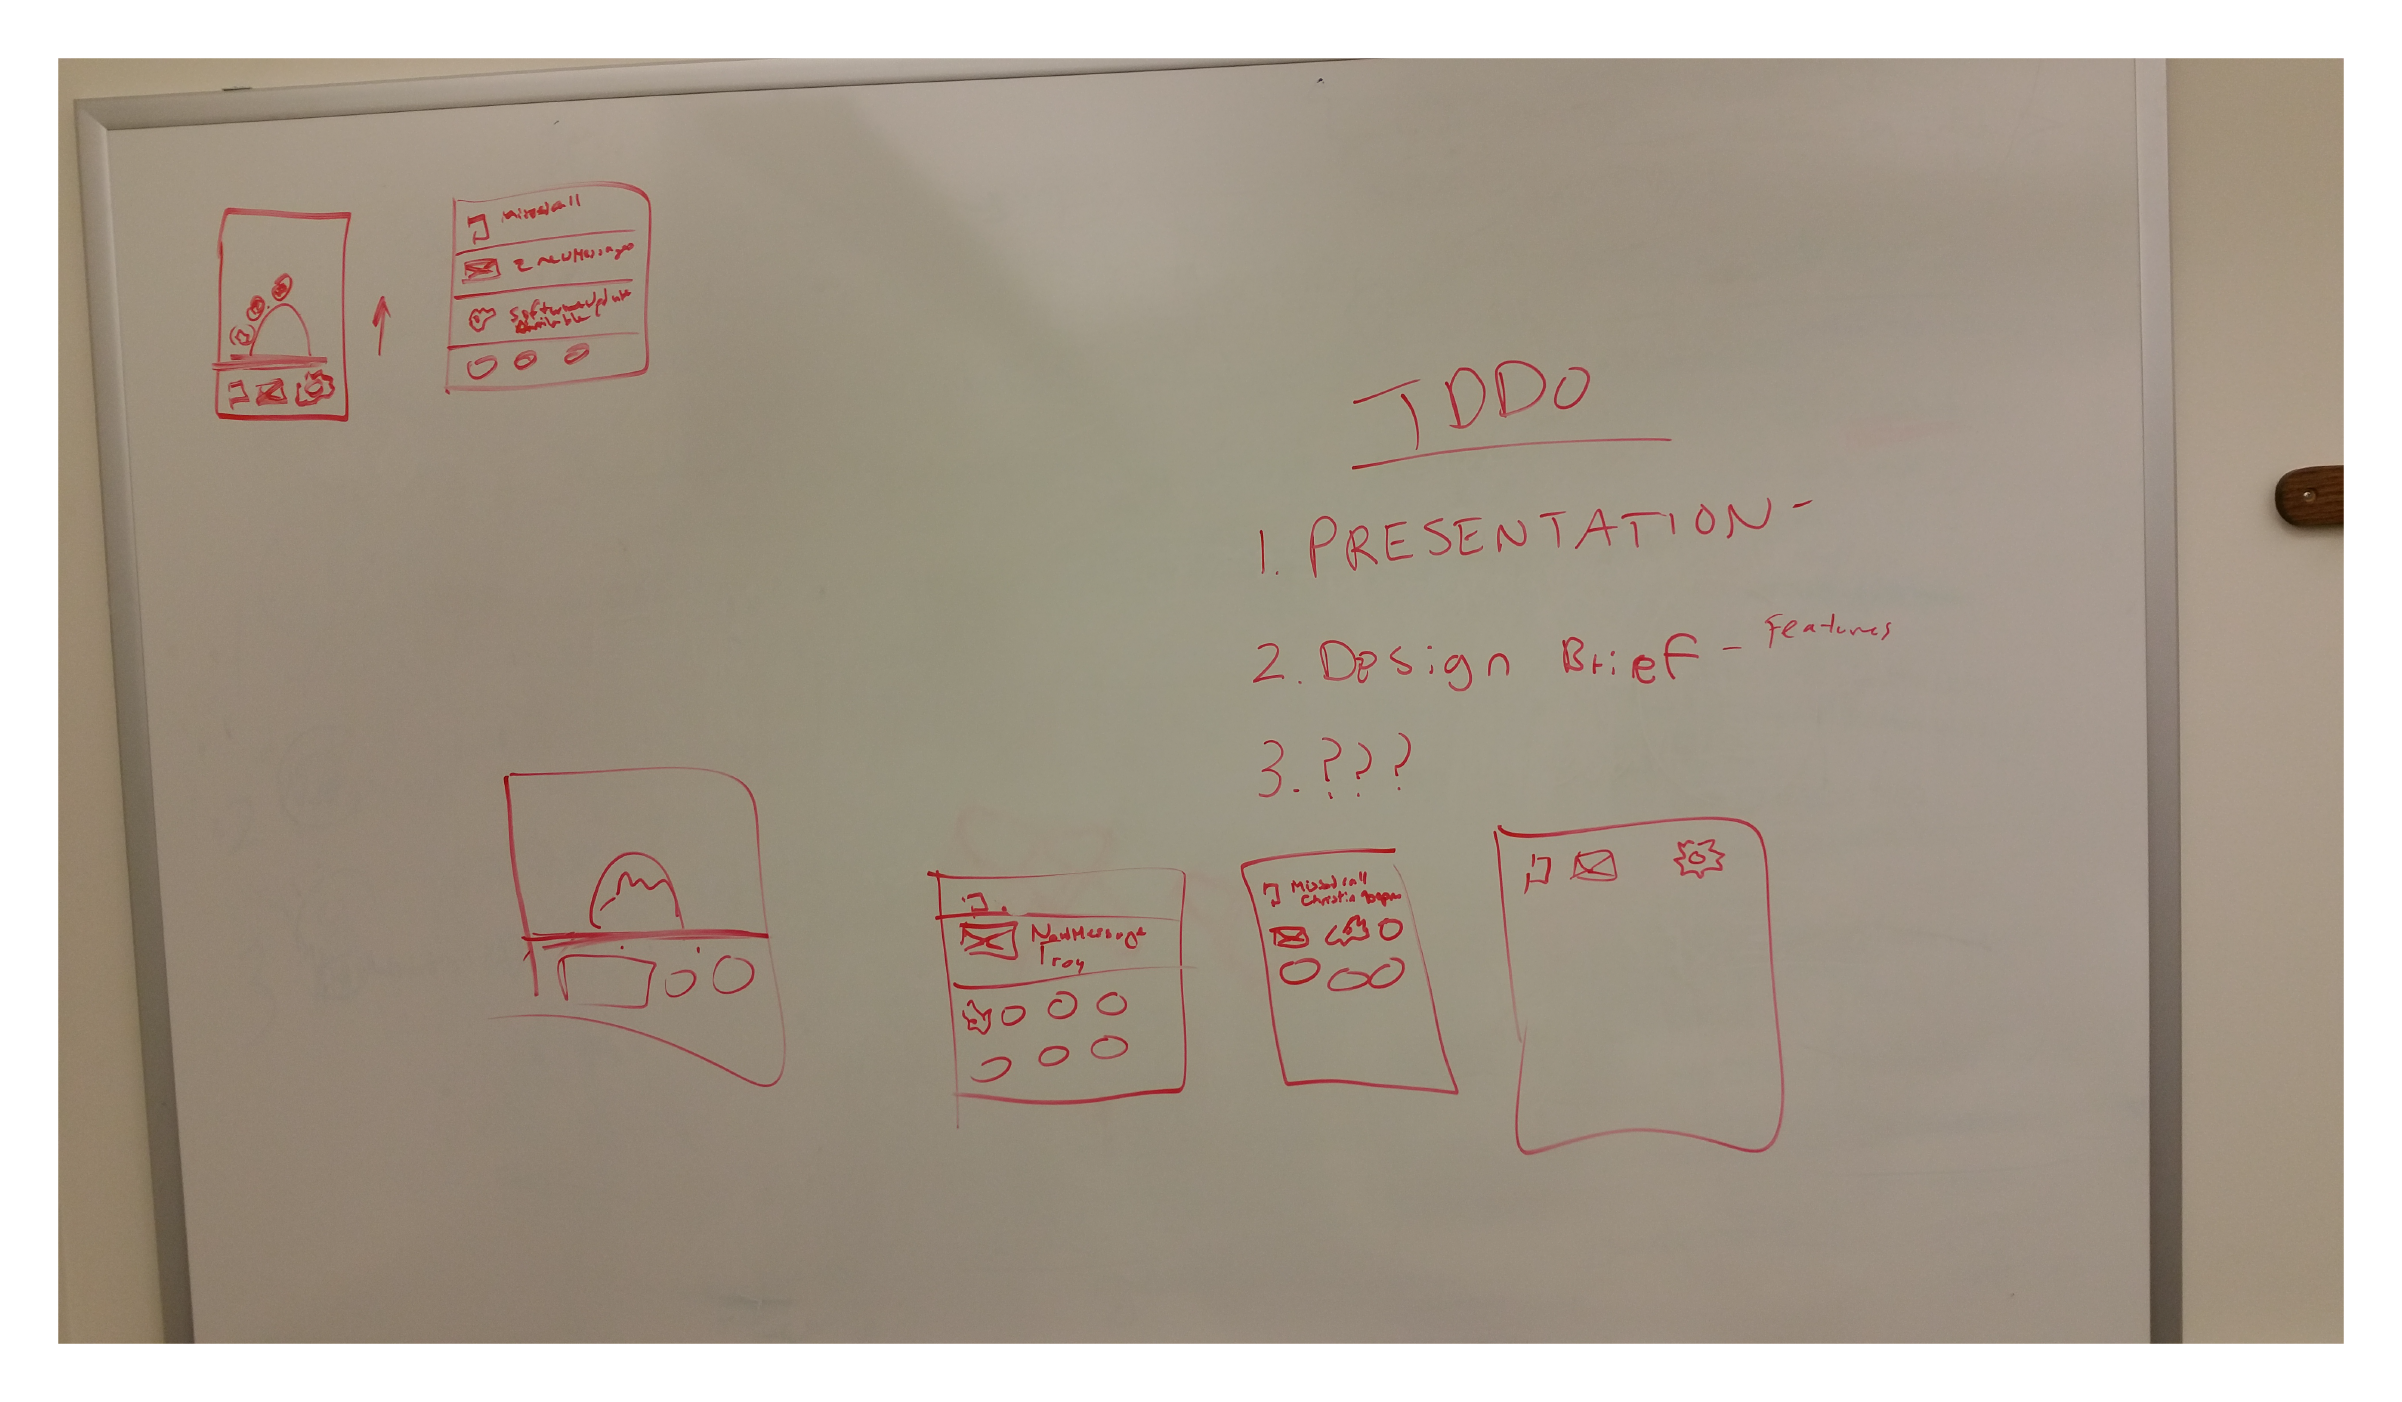 Missed call
2 New Messages
Software Update
Available
TODO
1. PRESENTATION -
2. Design Brief - Features
3. ???
New Message
Troy
Missed call
Christin